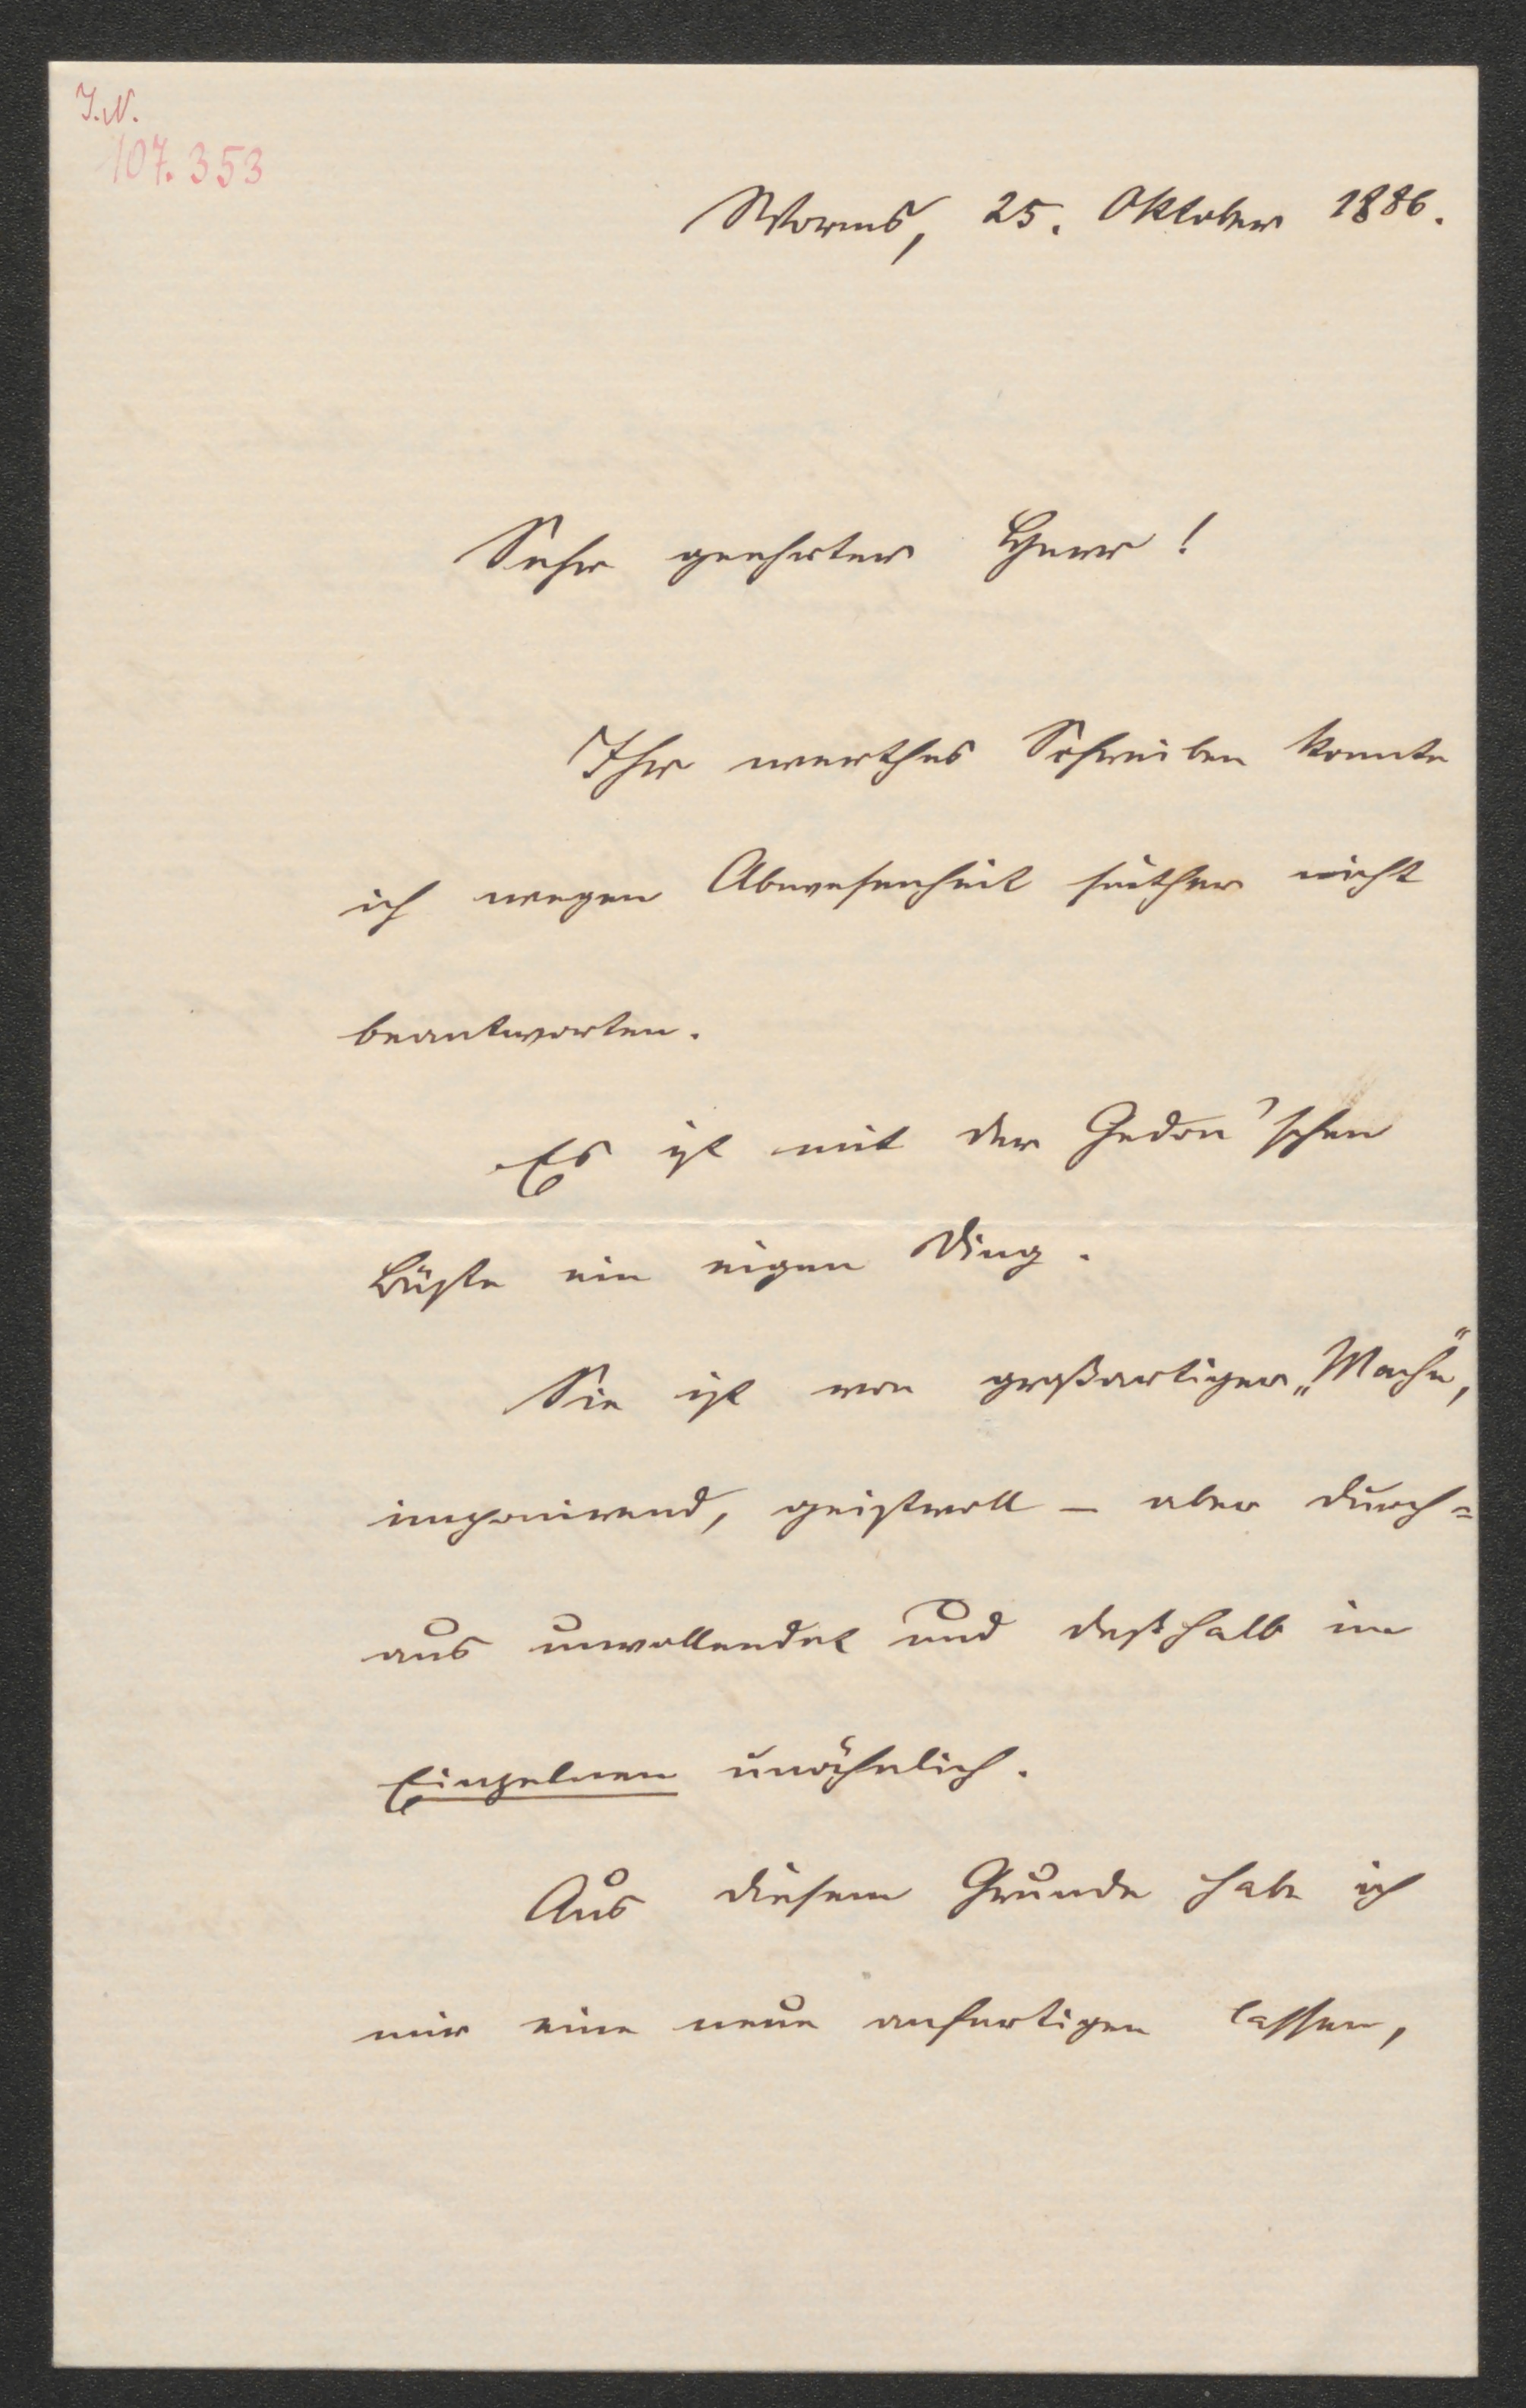 J.N.
107.353
Worms, 25. Oktober 1886.
Sehr geehrter Herr!
Ihr werthes Schreiben konnte
ich wegen Abwesenheit seither nicht
beantworten.
Es ist mit der Gedon'schen
Büste ein eigen Ding.
Sie ist von großartiger „Mache“,
imponirend, geistvoll – aber durch=
aus unvollendet und deßhalb im
Einzelnen unähnlich.
Aus diesem Grunde habe ich
mir eine neue anfertigen lassen,